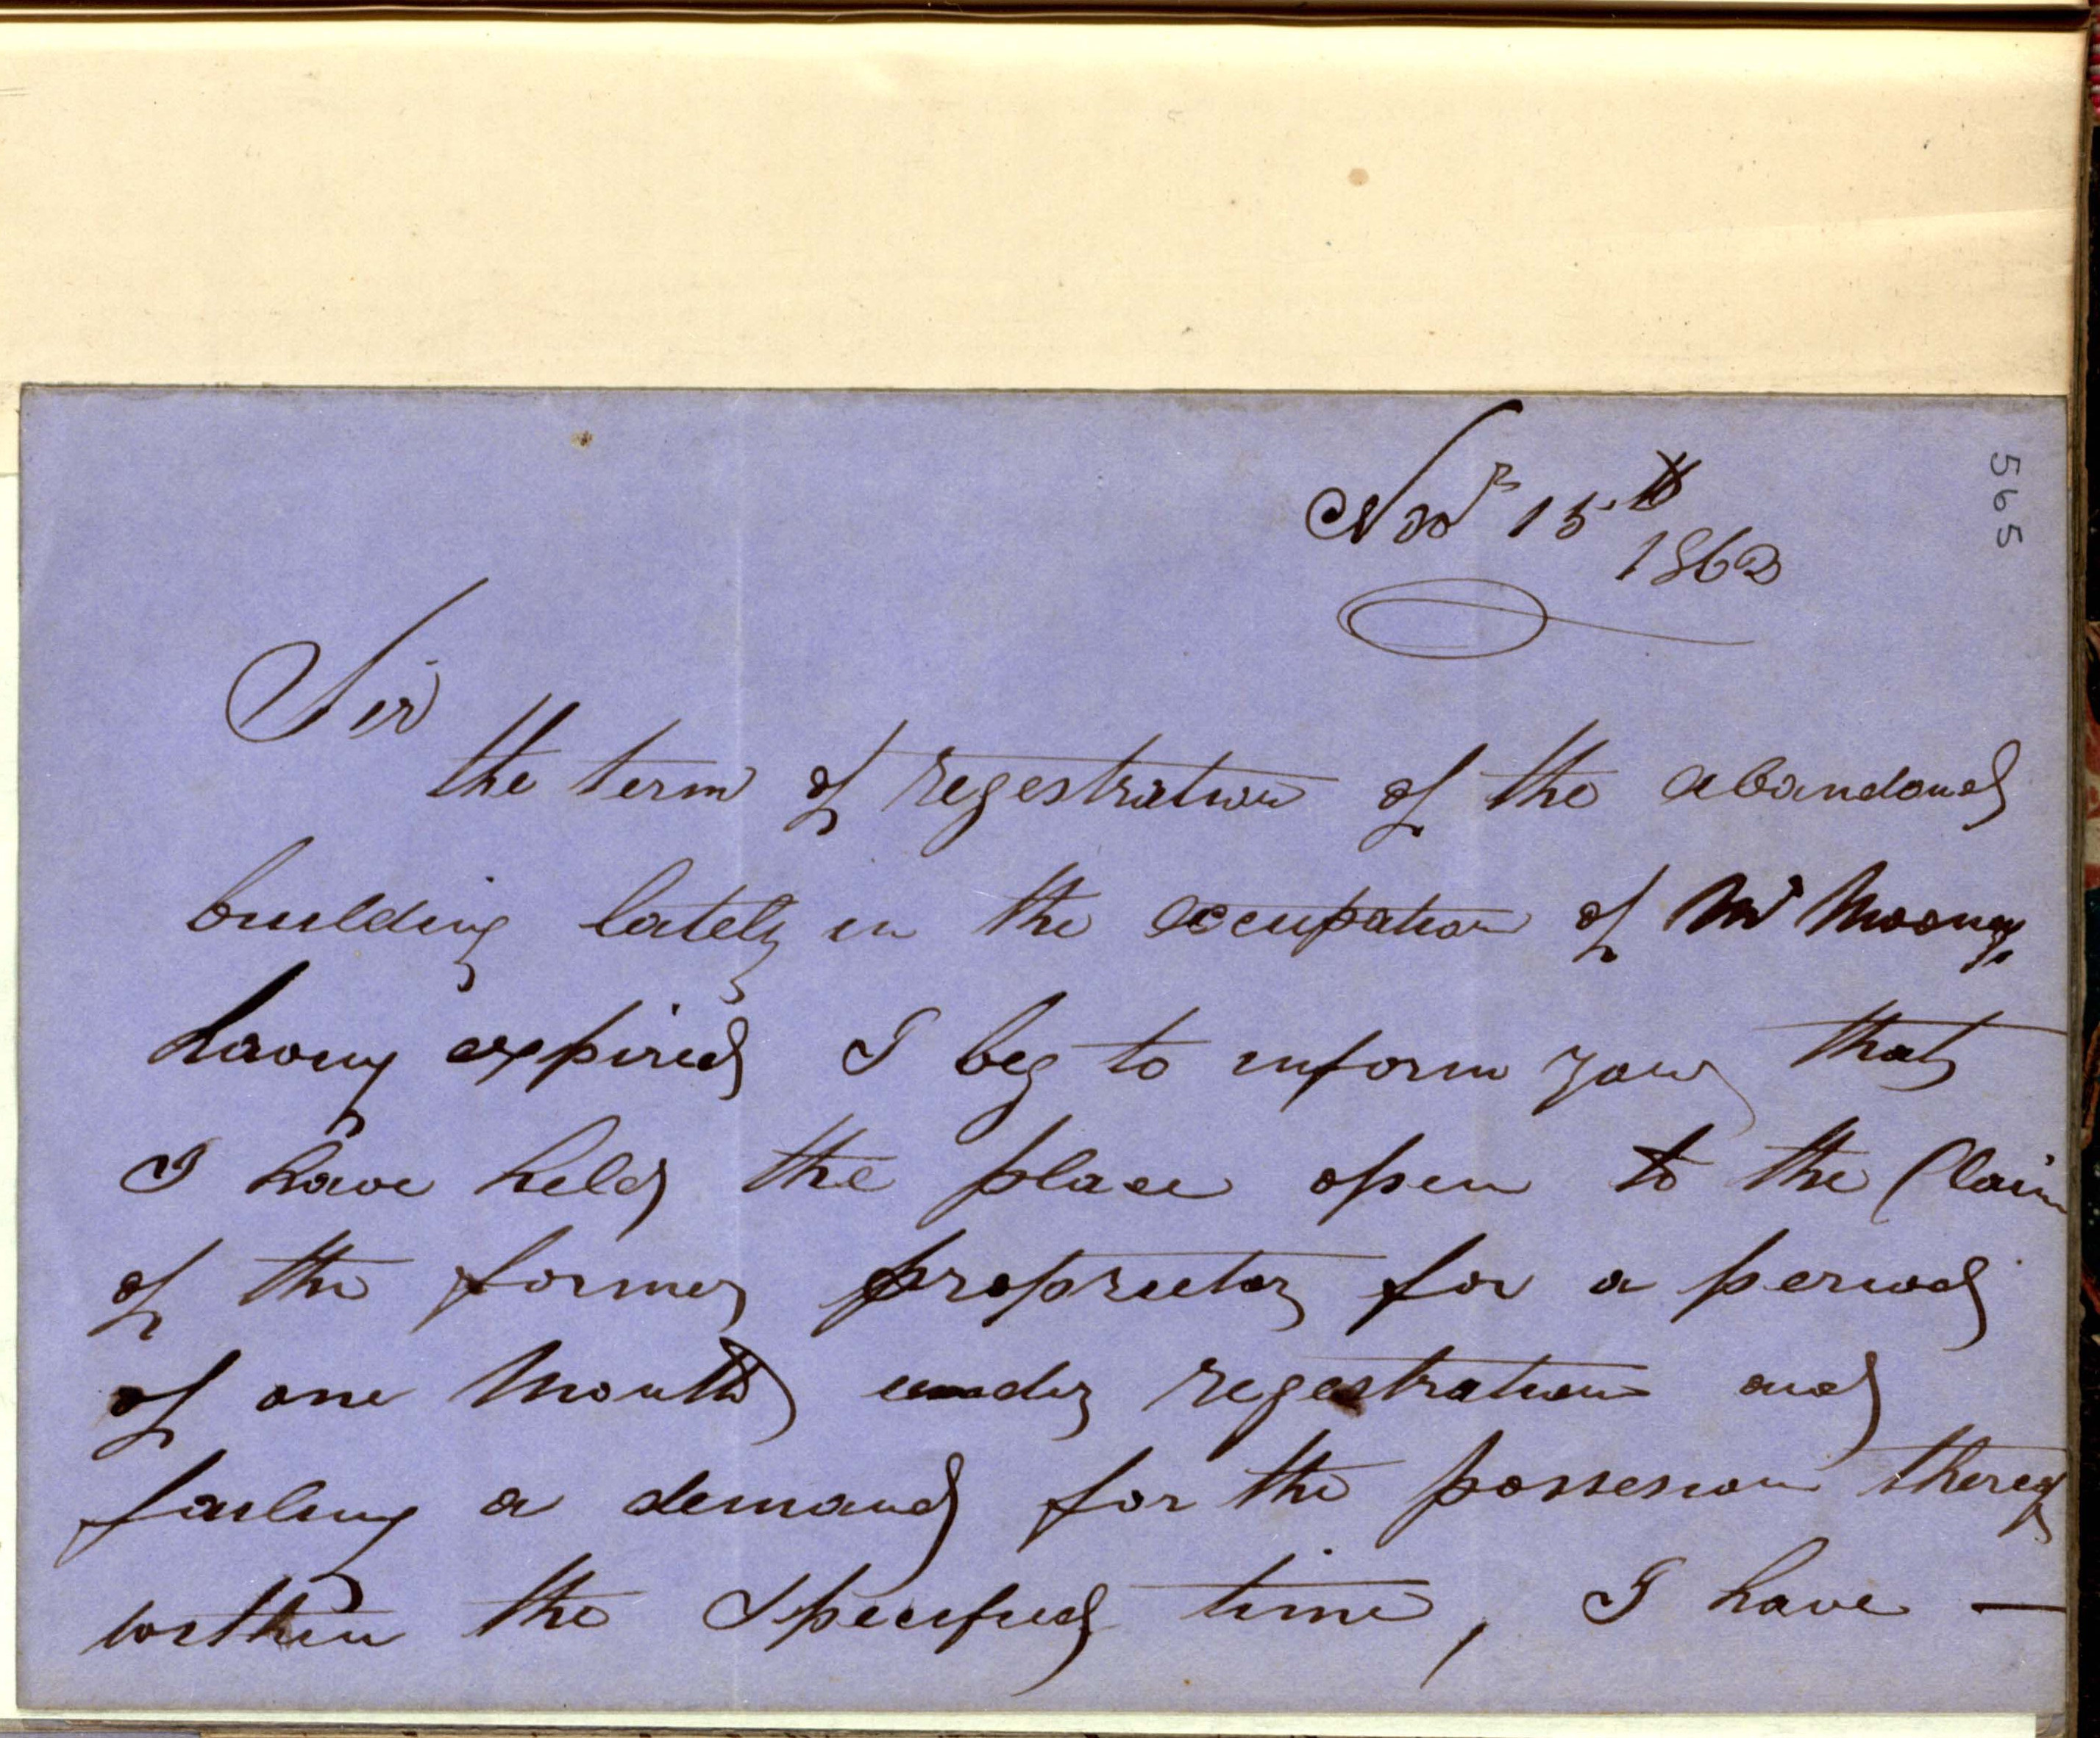 565
Novr 15th
1862
Sir
the term of regestration of the abandoned
building lately in the occupation of Mr Mooney
having expired I beg to inform you that
I have held the place open to the Claim
of the former proprietor for a period
of one Month under regestration and
failing a demand for the possession thereof
within the specified time, I have —